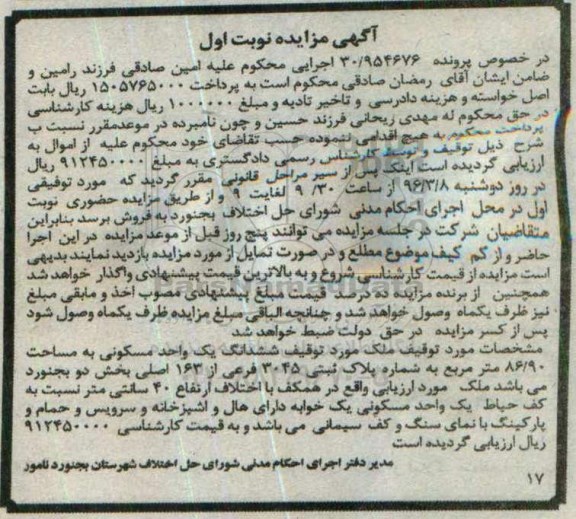 آگهی مزایده نوبت اول
در خصوص پرونده ۳۰/۹۵۴۶۷۶ اجرایی محکوم علیه امین صادقی فرزند رامین و
ضامن ایشان آقای رمضان صادقی محکوم است به پرداخت ۱۵۰۵۷۶۵۰۰۰ ریال بابت
اصل خواسته و هزینه دادرسی و تاخیر تادیه و مبلغ ۱۰۰۰۰۰۰ ریال هزینه کارشناسی
در حق محکوم له مهدی ریحانی فرزند حسین و چون نامبرده در موعدمقرر نسبت ب
پرداخت محکوم به هیچ اقدامی ننموده حسب تقاضای خود محکوم علیه از اموال به
شرح ذیل توقیف و توسط کارشناس رسمی دادگستری به مبلغ ۹۱۲۴۵۰۰۰۰ ریال
ارزیابی گردیده است اینک پس از سیر مراحل قانونی مقرر گردید که مورد توقیفی
در روز دوشنبه ۹۶/۳/۸ از ساعت ۹/۳۰ لغایت ۹ و از طریق مزایده حضوری نوبت
اول در محل اجرای احکام مدنی شورای حل اختلاف بجنورد به فروش برسد بنابراین
متقاضیان شرکت در جلسه مزایده می توانند پنج روز قبل از موعد مزایده در این اجرا
حاضر و از کم کیف موضوع مطلع و در صورت تمایل از مورد مزایده بازدید نمایند بدیهی
است مزایده از قیمت کارشناسی شروع و به بالاترین قیمت پیشنهادی واگذار خواهد شد
همچنین از برنده مزایده ده درصد قیمت مبلغ پیشنهادی مصوب اخذ و مابقی مبلغ
نیز ظرف یکماه وصول خواهد شد و چنانچه الباقی مبلغ مزایده ظرف یکماه وصول شود
پس از کسر مزایده در حق دولت ضبط خواهد شد
مشخصات مورد توقیف ملک مورد توقیف ششدانگ یک واحد مسکونی به مساحت
۸۶/۹۰ متر مربع به شماره پلاک ثبتی ۳۰۴۵ فرعی از ۱۶۳ اصلی بخش دو بجنورد
می باشد ملک مورد ارزیابی واقع در همکف با اختلاف ارتفاع ۴۰ سانتی متر نسبت به
کف حیاط یک واحد مسکونی یک خوابه دارای هال و اشپزخانه و سرویس و حمام و
پارکینگ با نمای سنگ و کف سیمانی می باشد و به قیمت کارشناسی ۹۱۲۴۵۰۰۰۰
ریال ارزیابی گردیده است
مدیر دفتر اجرای احکام مدنی شورای حل اختلاف شهرستان بجنورد نامور
۱۷